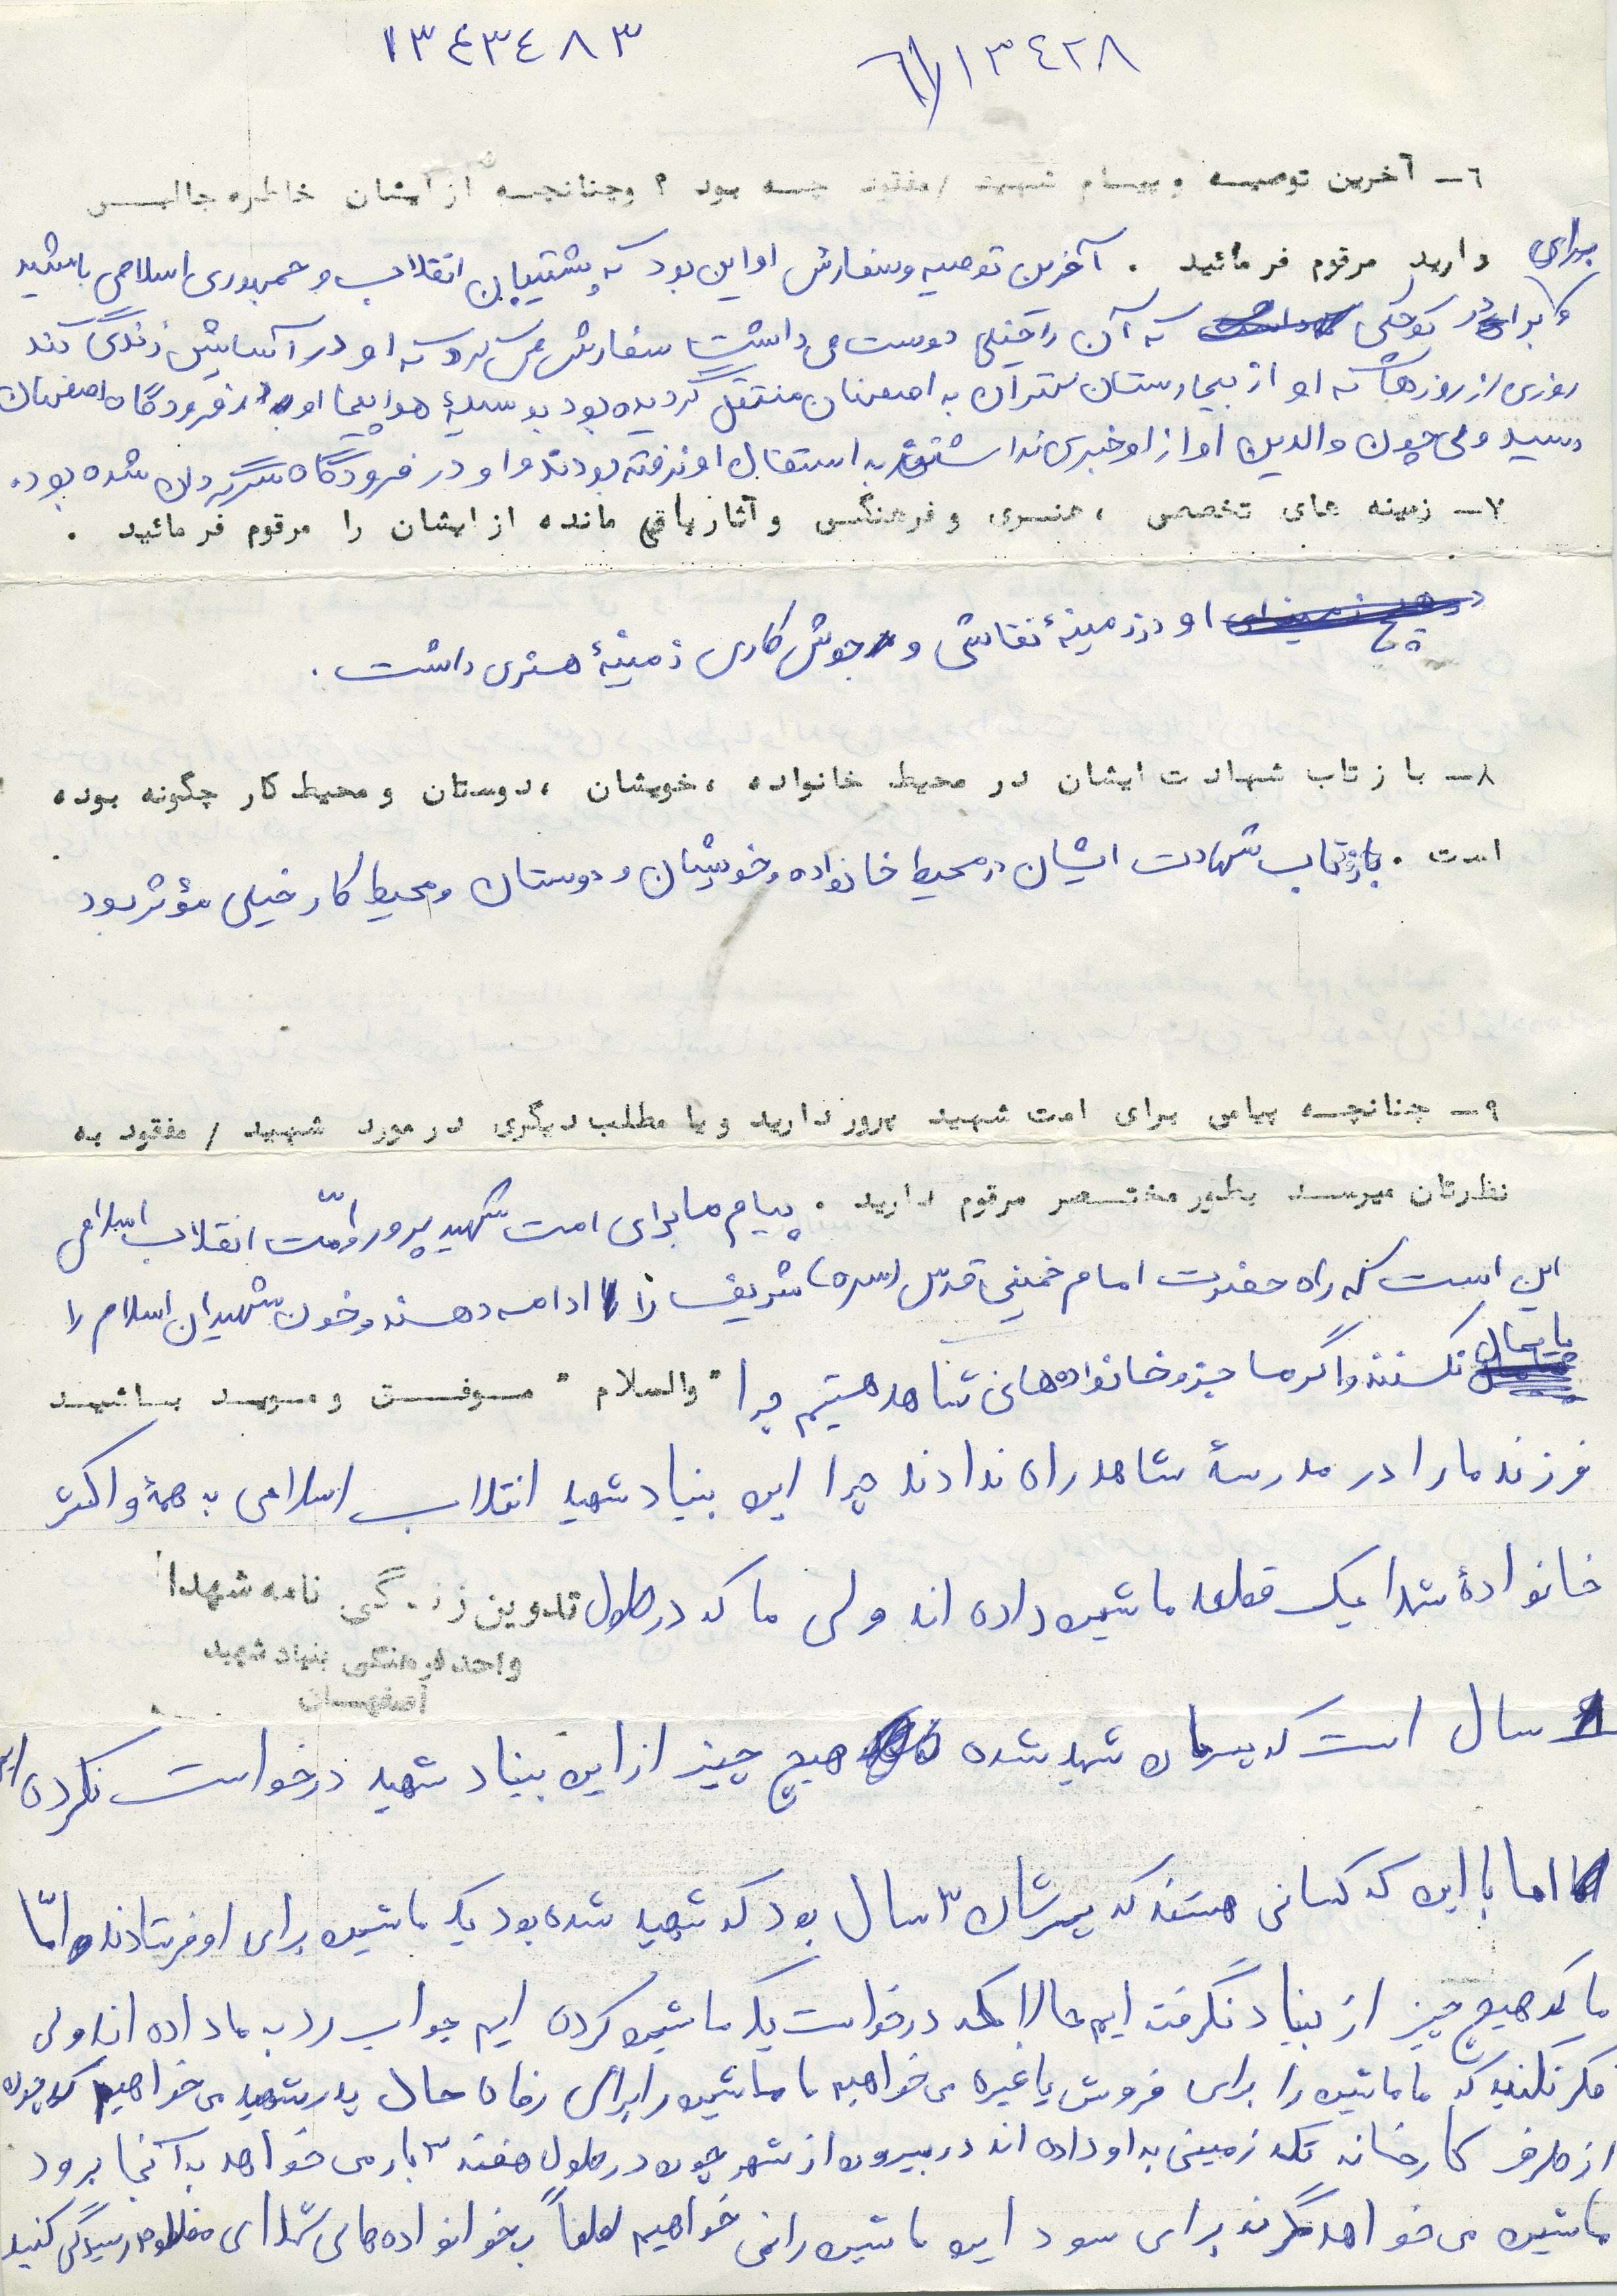 ۱۳۴۳۴۸۳
۶۱/۱۳۴۲۸
۶ـ آخرین توصیه و پیام شهید / مفقود چه بود ؟ وچنانچه از ایشان خاطره جالبی
دارید مرقوم فرمائید . آخرین توصیه و سفارش او این بود که پشتیبان انقلاب و جمهوری اسلامی باشید
و برای برادر کوچکی که آن را خیلی دوست می داشت سفارش می کرد که او در آسایش زندگی کند
روزی از روزها که او از بیمارستان تهران به اصفهان منتقل گردیده بود بوسیلهٔ هواپیما او در فرودگاه اصفهان
رسید ولی چون والدین او از او خبری نداشتند به استقبال او نرفته بودند و او در فرودگاه سرگردان شده بود.
۷ـ زمینه های تخصصی ، هنری و فرهنگی و آثار باقی مانده از ایشان را مرقوم فرمائید .
او در زمینهٔ نقاشی و جوش کاری زمینهٔ هنری داشت .
۸ـ بازتاب شهادت ایشان در محیط خانواده ، خویشان ، دوستان و محیط کار چگونه بوده
است . بازتاب شهادت ایشان در محیط خانواده و خویشان و دوستان و محیط کار خیلی مؤثر بود
۹ـ چنانچه پیامی برای امت شهید پرور دارید و یا مطلب دیگری در مورد شهید / مفقود به
نظرتان میرسد بطور مختصر مرقوم دارید . پیام ما برای امت شهید پرور و امّت انقلاب اسلامی
این است که راه حضرت امام خمینی قدس (سره) شریف را ادامه دهند و خون شهیدان اسلام را
پایمال نکنند و اگر ما جزو خانواده‌های شاهد هستیم چرا " والسلام " موفق و موید باشید
فرزند ما را در مدرسهٔ شاهد راه ندادند چرا این بنیاد شهید انقلاب اسلامی به همهٔ و اکثر
خانوادهٔ شهدا یک قطعه ماشین داده اند ولی ما که در طول تدوین زندگی نامه شهدا
واحد فرهنگی بنیاد شهید
اصفهان
سال است که پسرمان شهید شده هیچ چیز از این بنیاد شهید درخواست نکرده ایم
اما با این که کسانی هستند که پسرشان ۳ سال بود که شهید شده بود یک ماشین برای او فرستادند و امّا
ما که هیچ چیز از بنیاد نگرفته ایم حالا که درخواست یک ماشین کرده ایم جواب رد به ما داده اند ولی
فکر نکنید که ما ماشین را برای فروش یا غیره می خواهیم ما ماشین را برای رفاه حال پدر شهید می خواهیم که چون
از طرف کارخانه تکه زمینی به او داده اند در بیرون از شهر چون در طول هفته ۳ بار می خواهد به آنجا برود
ماشین می خواهد گرنه برای سود این ماشین را نمی خواهیم لطفاً به خوانواده های شهدای مظلوم رسیدگی کنید